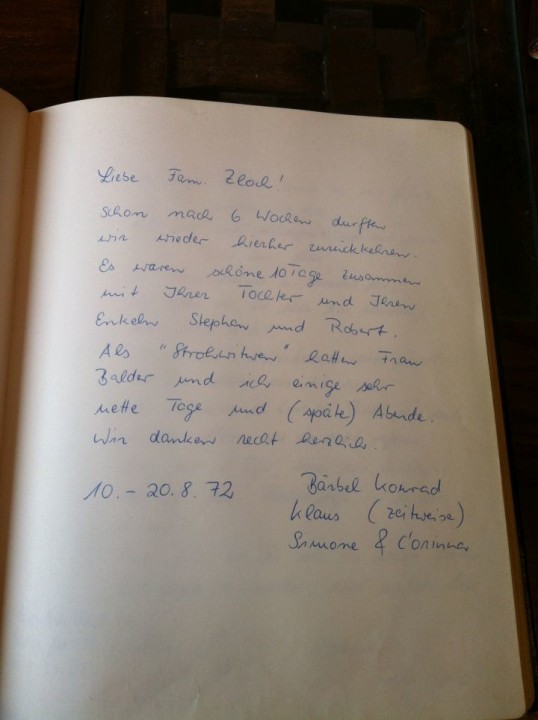 Liebe Fam. Zloch!
Schon nach 6 Wochen durften
wir wieder hierher zurückkehren.
Es waren schöne 10 Tage zusammen
mit Ihrer Tochter und Ihren
Enkeln Stephan und Robert.
Als "Strohwitwen" hatten Frau
Balder und ich einige sehr
nette Tage und (späte) Abende.
Wir danken recht herzlich.
10. - 20. 8. 72
Bärbel Konrad
Klaus (zeitweise)
Simone & Corinna